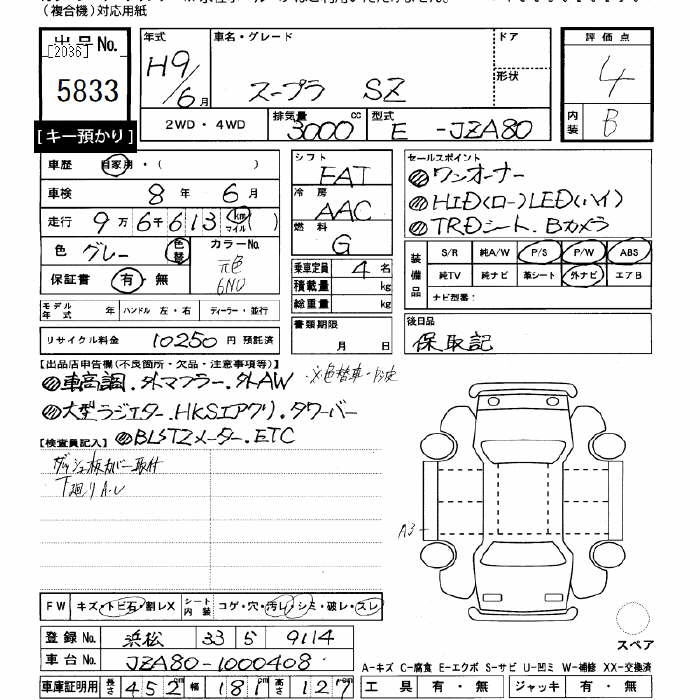 (複合機)対応用紙
出品No.
[2036]
5833
[キー預かり]
年式 H9/6月
車名・グレード スープラ SZ
ドア
形状
評価点 4
内装 B
2WD・4WD
排気量 3000 cc
型式 E-JZA80
車歴 自家用・( )
車検 8年 6月
走行 9万6千613 km マイル
色 グレー 色替
カラーNo. 元色 6N0
保証書 有・無
モデル年式 年 ハンドル 左・右 ディーラー・並行
リサイクル料金 10250 円 預託済
シフト FAT
冷房 AAC
燃料 G
乗車定員 4 名
積載量 kg
総重量 kg
書類期限 月 日
セールスポイント
ワンオーナー
HID(ロー)LED(ハイ)
TRDシート、Bカメラ
装備品 S/R 純A/W P/S P/W ABS
純TV 純ナビ 革シート 外ナビ エアB
ナビ型番:
後日品
保取記
【出品店申告欄(不良箇所・欠品・注意事項等)】
車高調.外マフラー.外AW
※色替車
大型ラジエター.HKSエアクリ.タワーバー
BLSTZメーター.ETC
【検査員記入】
ダッシュ板カバー取付
下廻りA.U
A3
FW キズ・トビ石・割レX シート内装 コゲ・穴・汚レ・シミ・破レ・スレ
登録No. 浜松 33 ら 9114
車台No. JZA80-1000408
スペア
A-キズ C-腐食 E-エクボ S-サビ U-凹ミ W-補修 XX-交換済
車庫証明用 長さ 452 幅 181 高さ 127
工具 有・無 ジャッキ 有・無